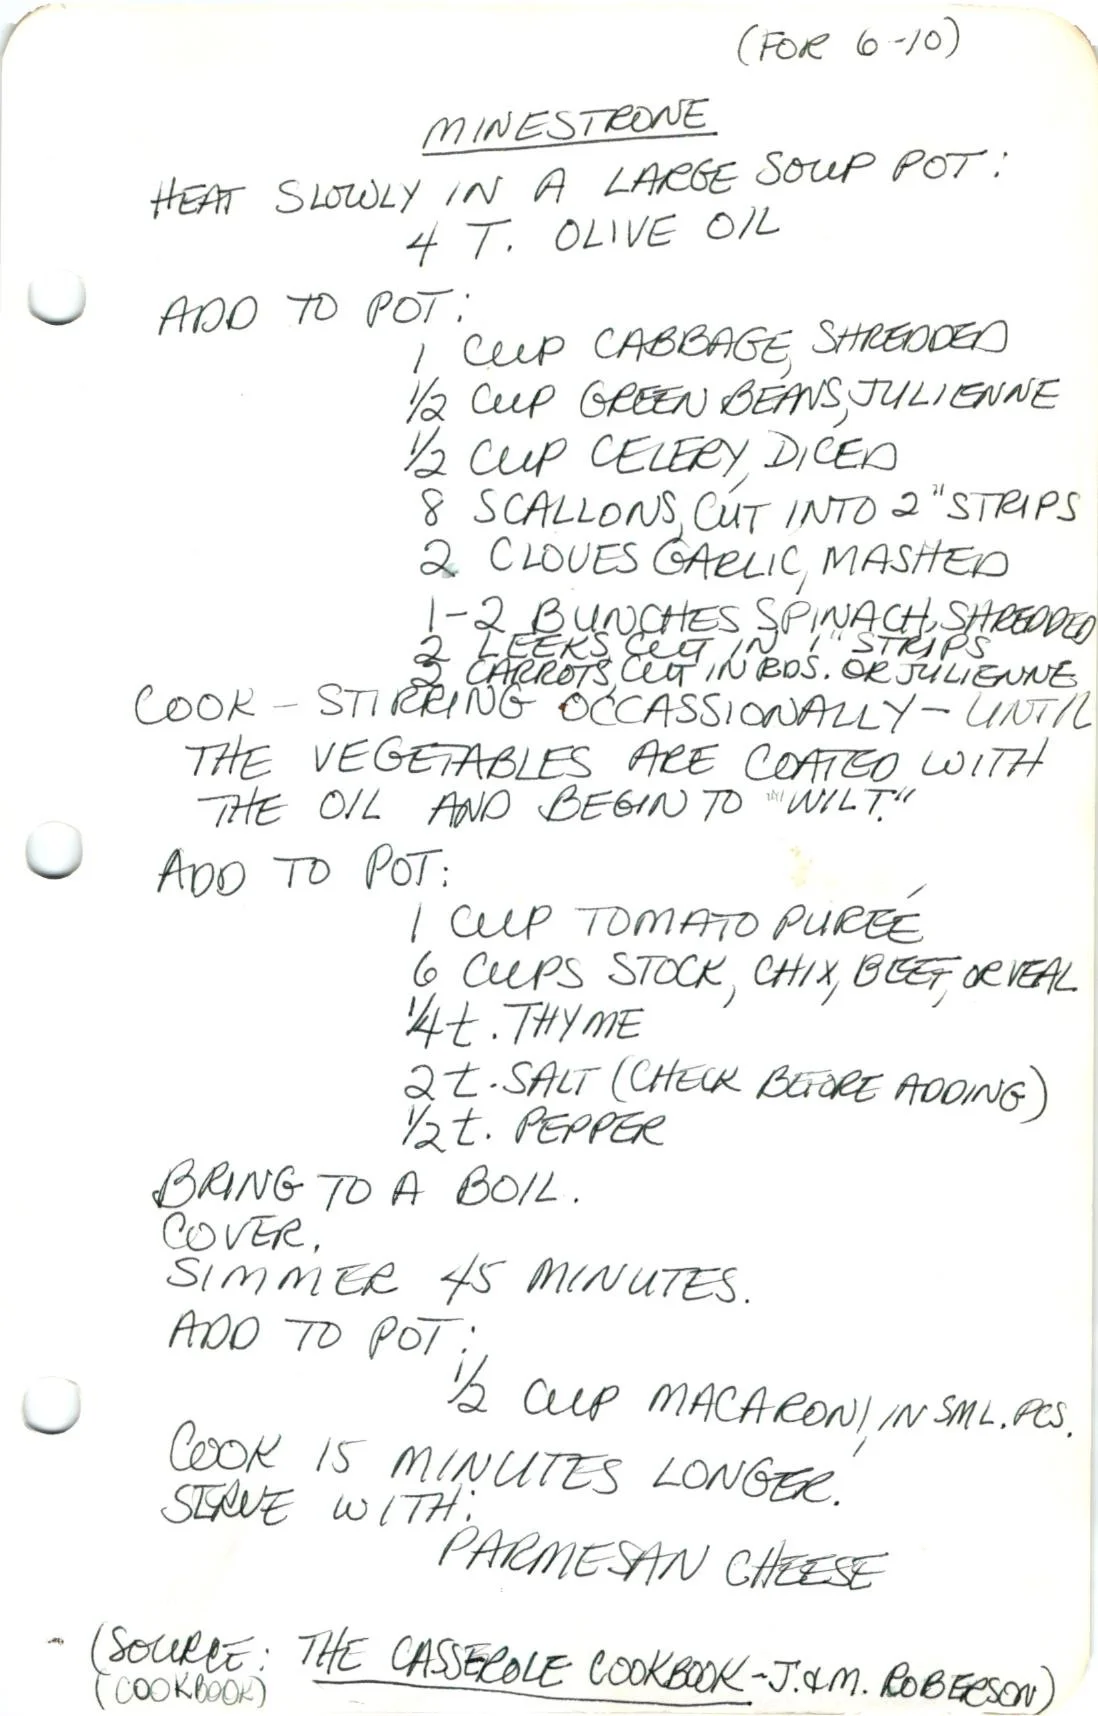 (FOR 6-10)
MINESTRONE
HEAT SLOWLY IN A LARGE SOUP POT:
4 T. OLIVE OIL
ADD TO POT:
1 CUP CABBAGE, SHREDDED
1/2 CUP GREEN BEANS, JULIENNE
1/2 CUP CELERY, DICED
8 SCALLONS, CUT INTO 2" STRIPS
2 CLOVES GARLIC, MASHED
1-2 BUNCHES SPINACH, SHREDDED
2 LEEKS CUT IN 1" STRIPS
2 CARROTS, CUT IN RDS. OR JULIENNE
COOK - STIRRING OCCASSIONALLY - UNTIL
THE VEGETABLES ARE COATED WITH
THE OIL AND BEGIN TO "WILT."
ADD TO POT:
1 CUP TOMATO PUREÉ
6 CUPS STOCK, CHIX, BEEF, OR VEAL
1/4 t. THYME
2 t. SALT (CHECK BEFORE ADDING)
1/2 t. PEPPER
BRING TO A BOIL.
COVER.
SIMMER 45 MINUTES.
ADD TO POT:
1/2 CUP MACARONI, IN SML. PCS.
COOK 15 MINUTES LONGER.
SERVE WITH:
PARMESAN CHEESE
(SOURCE: THE CASSEROLE COOKBOOK - J. & M. ROBERSON)
(COOKBOOK)